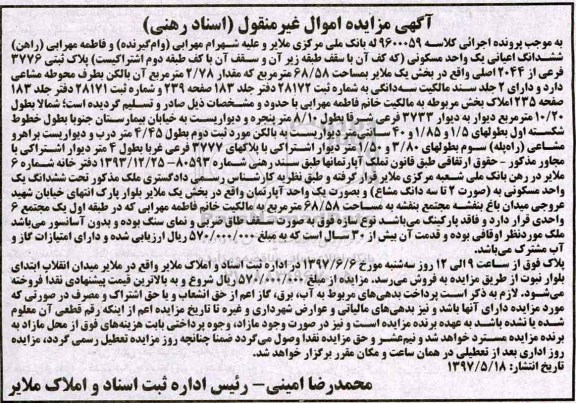 آگهی مزایده اموال غیرمنقول (اسناد رهنی)
به موجب پرونده اجرائی کلاسه ۹۶۰۰۰۵۹ له بانک ملی مرکزی ملایر و علیه شهرام مهرابی (وام‌گیرنده) و فاطمه مهرابی (راهن)
ششدانگ اعیانی یک واحد مسکونی (که کف آن با سقف طبقه زیر آن و سقف آن با کف طبقه دوم اشتراکیست) پلاک ثبتی ۳۷۷۶
فرعی از ۲۰۴۴ اصلی واقع در بخش یک ملایر بمساحت ۶۸/۵۸ مترمربع که مقدار ۲/۷۸ مترمربع آن بالکن بطرف محوطه مشاعی
دارد و دارای ۲ جلد سند مالکیت سه‌دانگی به شماره ثبت ۲۸۱۷۲ دفتر جلد ۱۸۳ صفحه ۲۳۹ و شماره ثبت ۲۸۱۷۱ دفتر جلد ۱۸۳
صفحه ۲۳۵ املاک بخش مربوطه به مالکیت خانم فاطمه مهرابی با حدود و مشخصات ذیل صادر و تسلیم گردیده است؛ شمالا بطول
۱۰/۲۰ مترمربع دیوار به دیوار ۳۷۳۳ فرعی شرقا بطول ۸/۱۰ متر پنجره و دیواریست به خیابان بیمارستان جنوبا بطول خطوط
شکسته اول بطولهای ۱/۵ و ۱/۸۵ و ۴۰ سانتی‌متر دیواریست به بالکن مورد ثبت دوم بطول ۴/۴۵ متر درب و دیواریست براهرو
مشاعی (راه‌پله) سوم بطولهای ۳/۸۰ و ۱/۵۰ متر دیوار اشتراکی با پلاکهای ۳۷۷۷ فرعی غربا بطول ۴ متر دیوار اشتراکی با
مجاور مذکور - حقوق ارتفاقی طبق قانون تملک آپارتمانها طبق سند رهنی شماره ۸۰۵۹۳ - ۱۳۹۳/۱۲/۲۵ دفتر خانه شماره ۶
ملایر در رهن بانک ملی شعبه مرکزی ملایر قرار گرفته و طبق نظریه کارشناس رسمی دادگستری ملک مذکور تحت ششدانگ یک
واحد مسکونی به (صورت ۲ تا سه دانگ مشاع) و بصورت یک واحد آپارتمان واقع در بخش یک ملایر بلوار پارک انتهای خیابان شهید
عروجی میدان باغ بنفشه مجتمع بنفشه به مساحت ۶۸/۵۸ مترمربع به مالکیت خانم فاطمه مهرابی که در طبقه اول یک مجتمع ۶
واحدی قرار دارد و فاقد پارکینگ می‌باشد نوع سازه فوق به صورت سقف طاق ضربی و نمای سنگ بوده و بدون آسانسور می‌باشد
ملک موردنظر اوقافی بوده و قدمت آن بیش از ۳۰ سال است که به مبلغ ۵۷۰/۰۰۰/۰۰۰ ریال ارزیابی شده و دارای امتیازات گاز و
آب مشترک می‌باشد.
پلاک فوق از ساعت ۹ الی ۱۲ روز سه‌شنبه مورخ ۱۳۹۷/۶/۶ در اداره ثبت اسناد و املاک ملایر واقع در ملایر میدان انقلاب ابتدای
بلوار نبوت از طریق مزایده به فروش می‌رسد. مزایده از مبلغ ۵۷۰/۰۰۰/۰۰۰ ریال شروع و به بالاترین قیمت پیشنهادی نقدا فروخته
می‌شود. لازم به ذکر است پرداخت بدهی‌های مربوط به آب، برق، گاز اعم از حق انشعاب و یا حق اشتراک و مصرف در صورتی که
مورد مزایده دارای آنها باشد و نیز بدهی‌های مالیاتی و عوارض شهرداری و غیره تا تاریخ مزایده اعم از اینکه رقم قطعی آن معلوم
شده یا نشده باشد به عهده برنده مزایده است و نیز در صورت وجود مازاد، وجوه پرداختی بابت هزینه‌های فوق از محل مازاد به
برنده مزایده مسترد خواهد شد و نیم‌عشر و حق مزایده نقدا وصول می‌گردد ضمنا چنانچه روز مزایده تعطیل رسمی گردد، مزایده
روز اداری بعد از تعطیلی در همان ساعت و مکان مقرر برگزار خواهد شد.
تاریخ انتشار: ۱۳۹۷/۵/۱۸
محمدرضا امینی - رئیس اداره ثبت اسناد و املاک ملایر